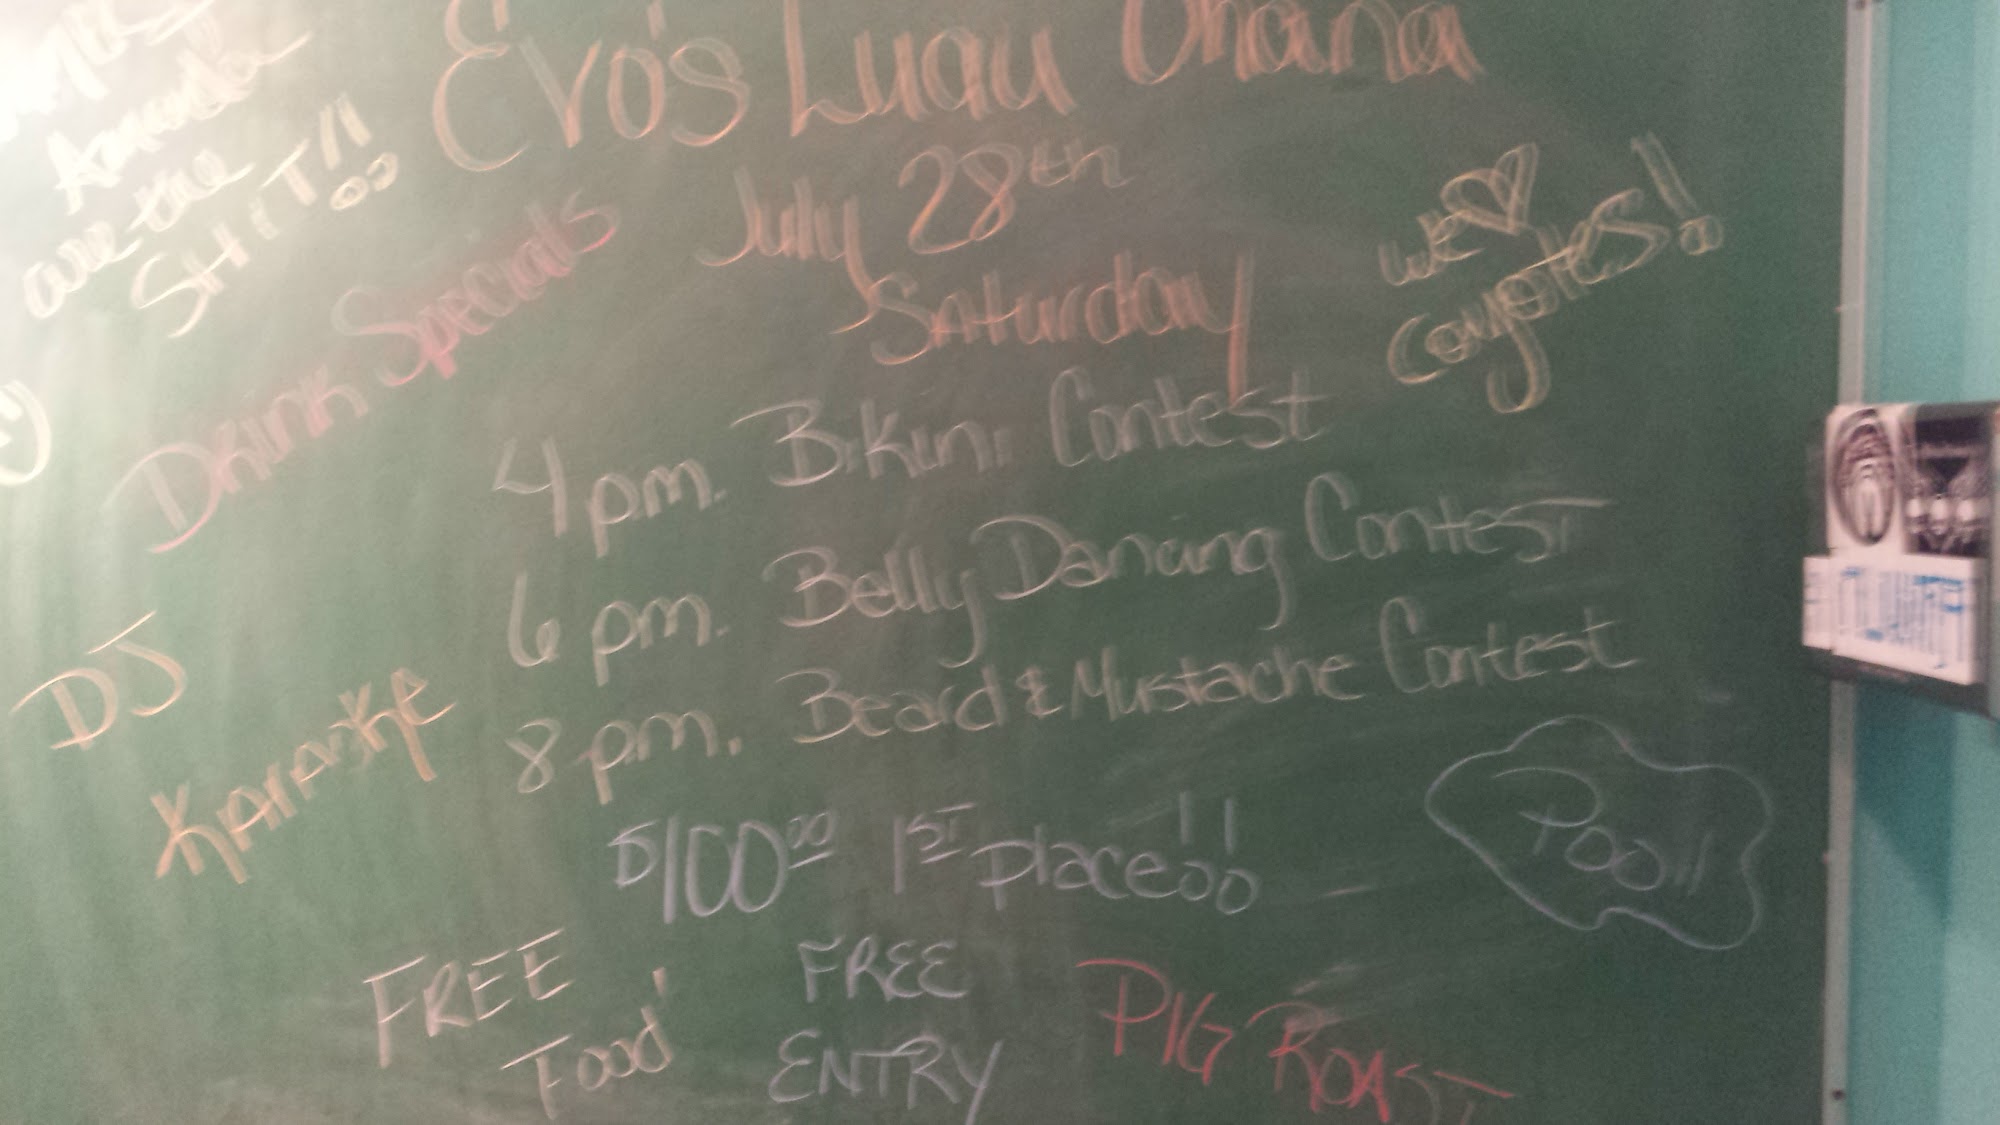 Amanda
are the
SHIT!!
Evo's Luau Ohana
July 28th
Saturday
We ♡
Coyotes!!
Drink Specials
4 pm. Bikini Contest
6 pm. Belly Dancing Contest
8 pm. Beard & Mustache Contest
DJ
Karaoke
$100.00 1ST place!!
Pool!
FREE
Food!
FREE
ENTRY
PIG ROAST